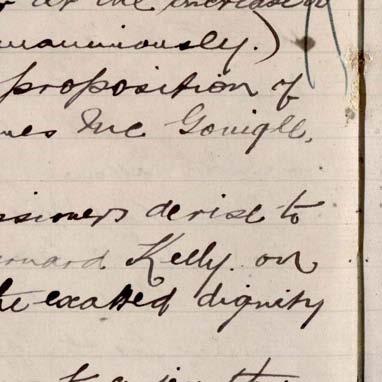 at the increased
unanimously.)
proposition of
mes Mc Gonigle,
ssioners desire to
ernard Kelly. on
the exalted dignity